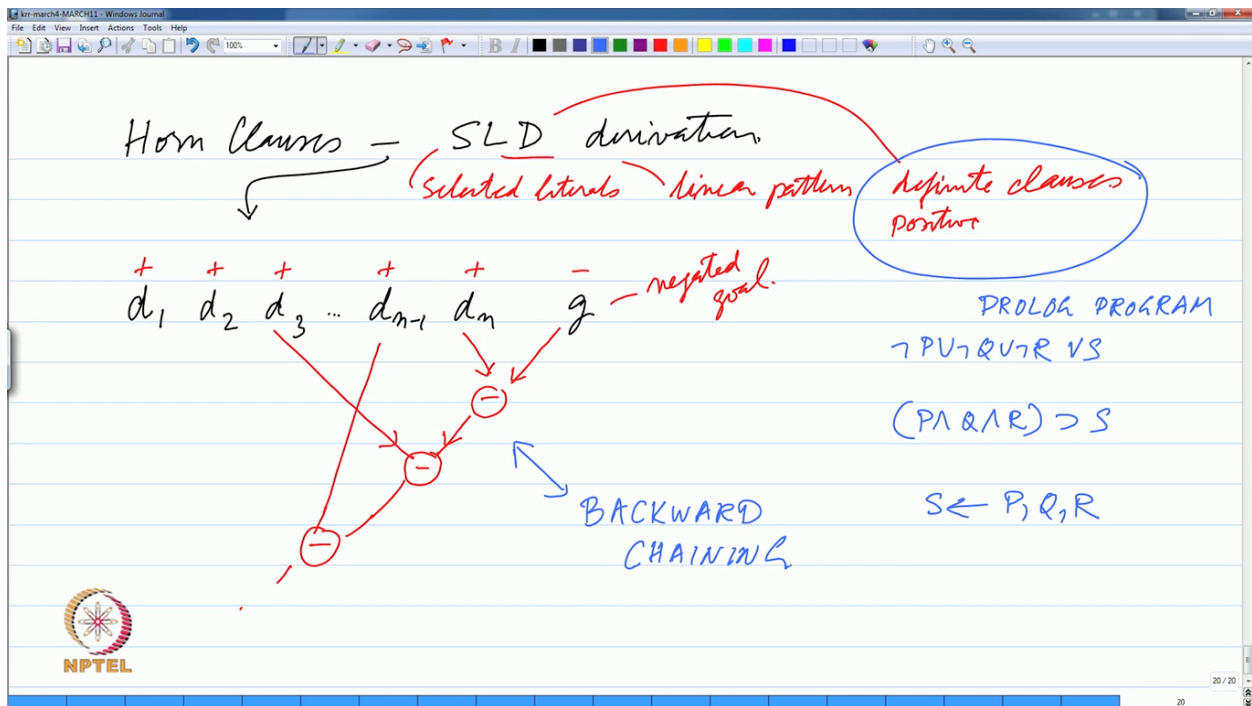 krr-march4-MARCH11 - Windows Journal
File Edit View Insert Actions Tools Help
100%
B I
Horn Clauses - SLD derivation.
selected literals
linear pattern
definite clauses
positive
+ + + + + -
d1 d2 d3 ... dn-1 dn g
negated
goal.
PROLOG PROGRAM
¬P∨¬Q∨¬R ∨S
(P∧Q∧R) ⊃ S
S← P, Q, R
-
-
-
BACKWARD
CHAINING
NPTEL
20 / 20
20